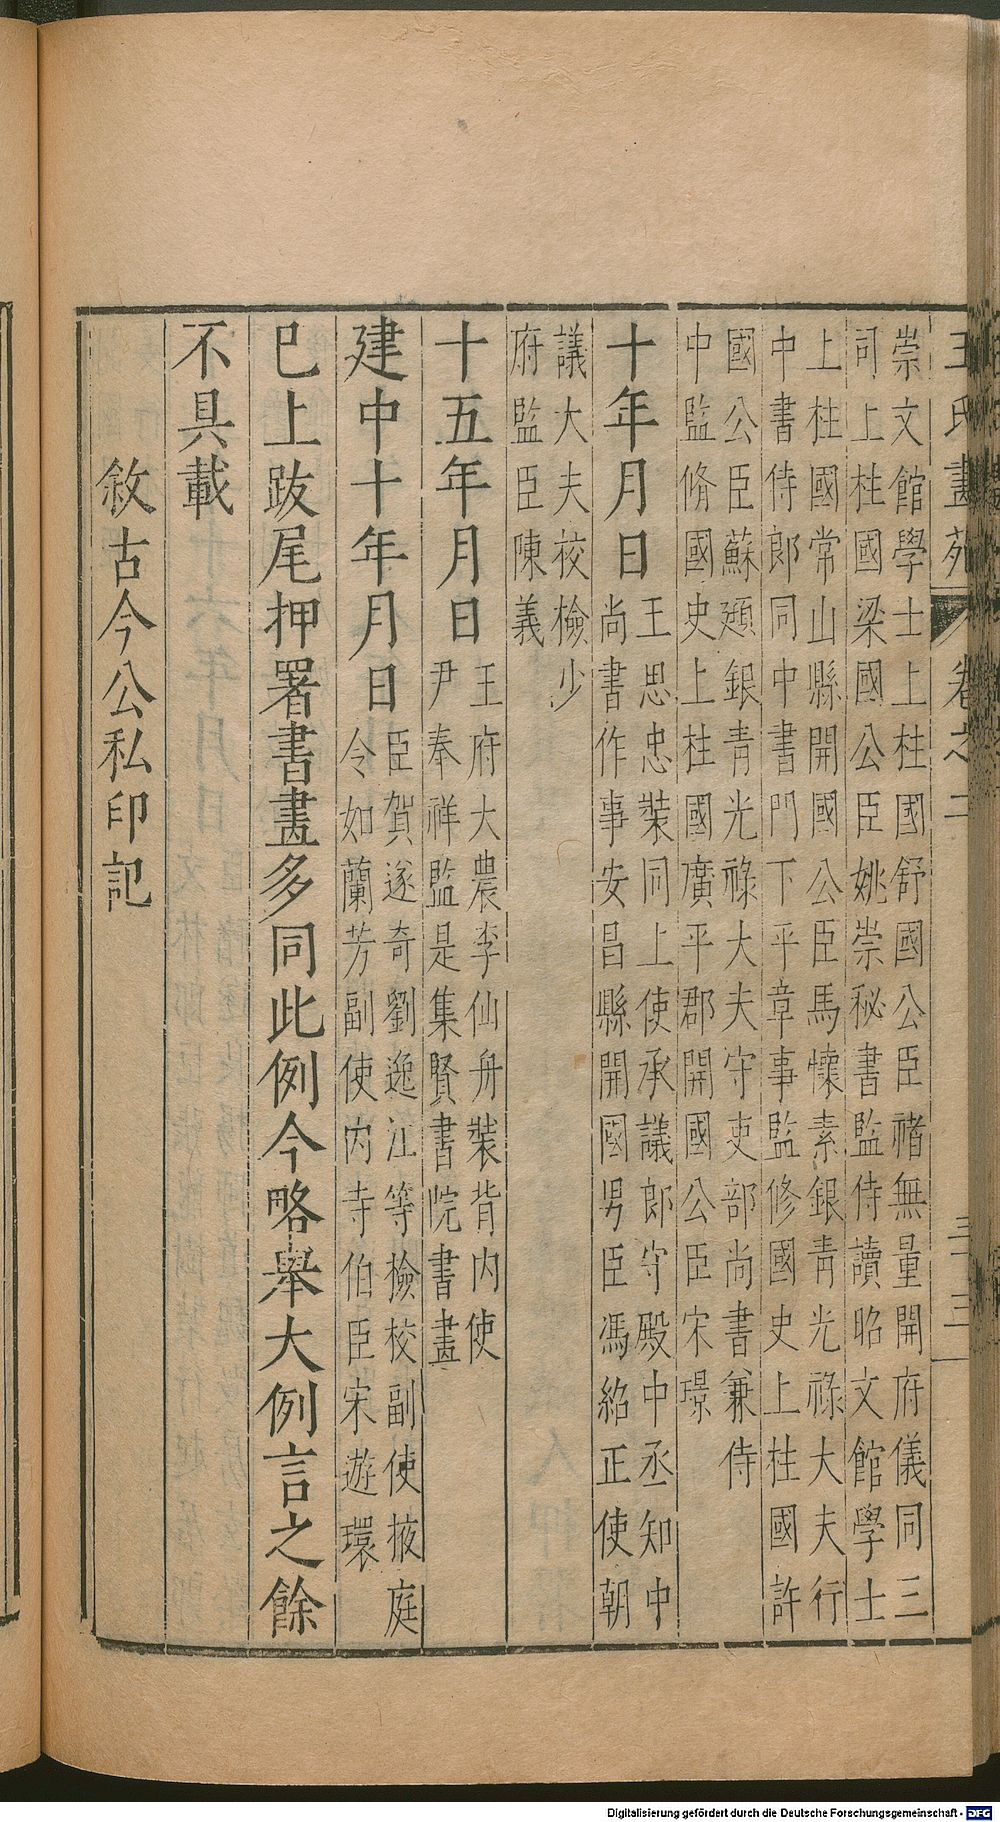 王氏畫苑 卷之二 三十三
崇文館學士上柱國舒國公臣禇無量開府儀同三
司上柱國梁國公臣姚崇秘書監侍讀昭文館學士
上柱國常山縣開國公臣馬懷素銀青光祿大夫行
中書侍郎同中書門下平章事監修國史上柱國許
國公臣蘇頲銀青光祿大夫守吏部尚書兼侍
中監脩國史上柱國廣平郡開國公臣宋璟
十年月日王思忠裝同上使承議郎守殿中丞知中
尚書作事安昌縣開國男臣馮紹正使朝
議大夫校檢少
府監臣陳義
十五年月日王府大農李仙舟裝背内使
尹奉祥監是集賢書院書畫
建中十年月日臣賀遂奇劉逸江等撿校副使掖庭
令如蘭芳副使内寺伯臣宋遊環
已上跋尾押署書畫多同此例今略舉大例言之餘
不具載
敘古今公私印記
Digitalisierung gefördert durch die Deutsche Forschungsgemeinschaft - DFG